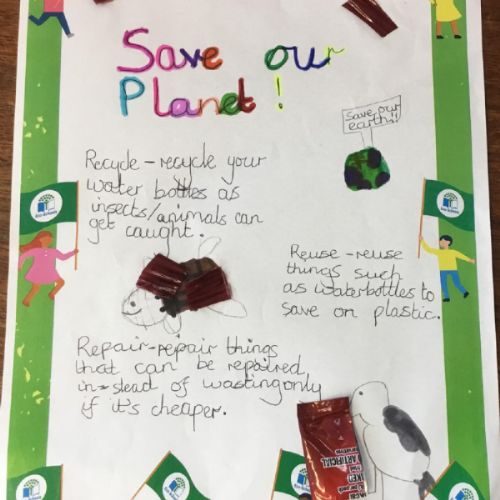 Save our
Planet!
Save our
earth!!
Recycle - recycle your
water bottles as
insects/animals can
get caught.
Reuse - reuse
things such
as waterbottles to
save on plastic.
Repair - repair things
that can be repaired
in-stead of wasting only
if it's cheaper.
Eco-Schools
Eco-Schools
ARTIFICIAL